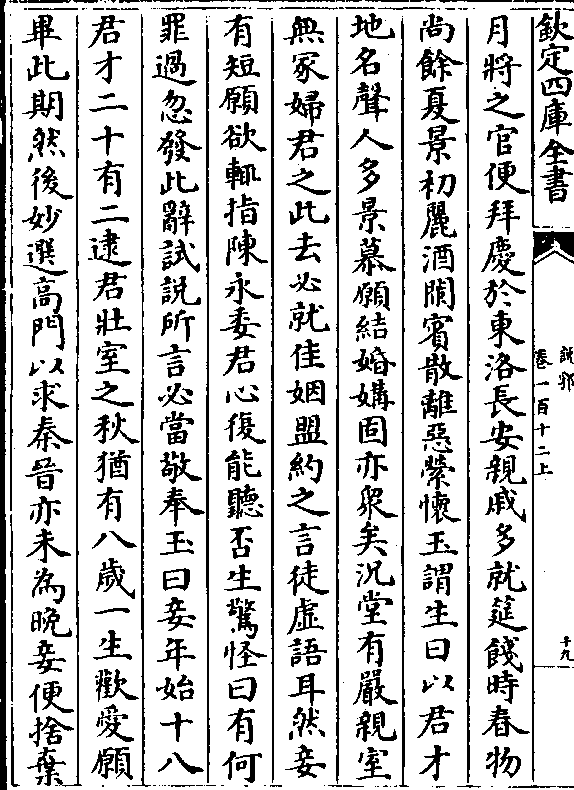 欽定四庫全書
說郛
卷一百十二上
十九
月將之官便拜慶於東洛長安親戚多就筵餞時春物
尚餘夏景初麗酒闌賓散離惡縈懷玉謂生曰以君才
地名聲人多景慕願結婚媾固亦衆矣況堂有嚴親室
無冢婦君之此去必就佳姻盟約之言徒虛語耳然妾
有短願欲輒指陳永委君心復能聽否生驚怪曰有何
罪過忽發此辭試説所言必當敬奉玉曰妾年始十八
君才二十有二逮君壯室之秋猶有八歲一生歡愛願
畢此期然後妙選高門以求秦晉亦未為晚妾便捨棄